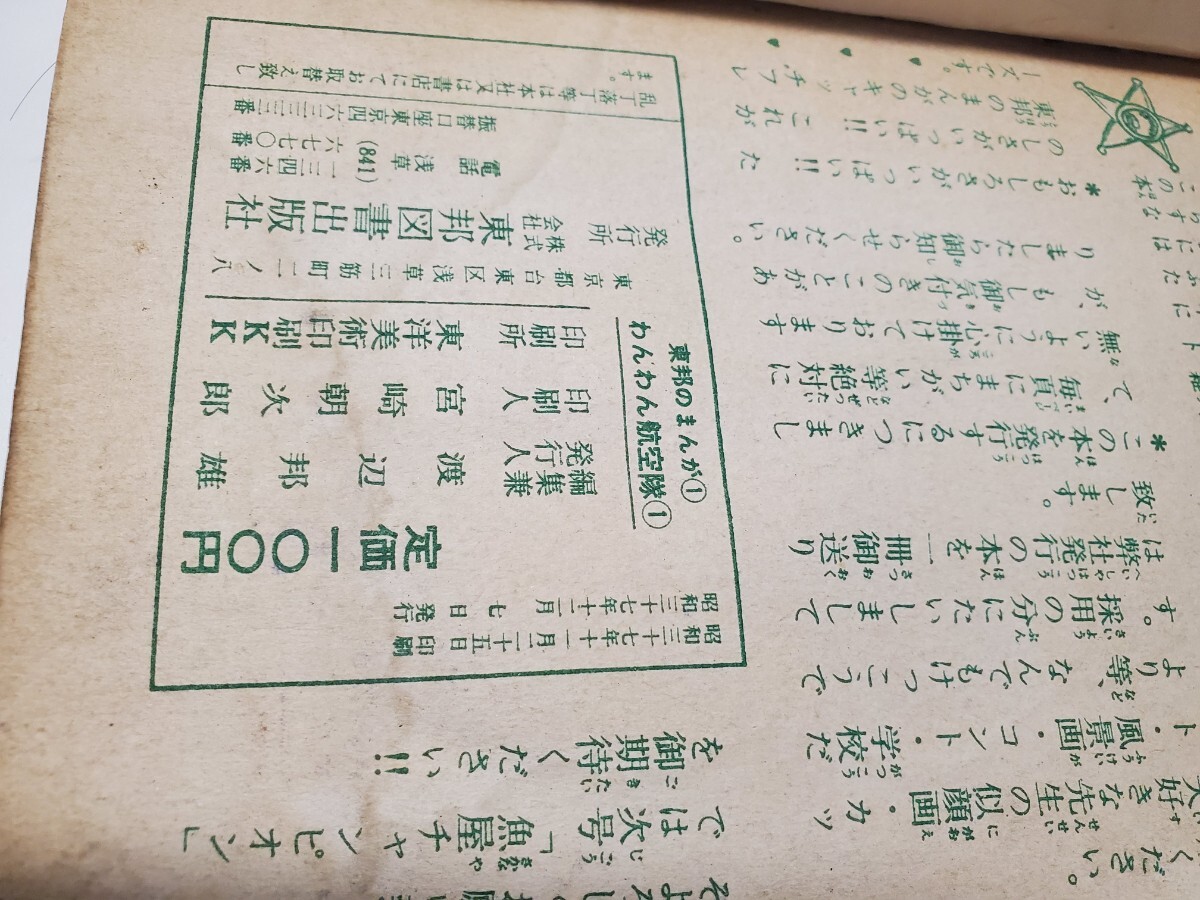 ください。
大好きな先生の似顔画・カッ
ト・風景画・コント・学校だ
より等、なんでもけつこうで
す。採用の分にたいしまして
は弊社発行の本を一冊御送り
致します。
*この本を発行するにつきまし
て、毎頁にまちがい等絶対に
無いように心掛けております
が、もし御気付きのことがあ
りましたら御知らせください。
*おもしろさがいっぱい!! た
のしさがいっぱい!! これが
東邦のまんがのキャッチ・フレ
ーズです。
では次号「魚屋チャンピオン」
を御期待ください!!
東邦のまんが①
わんわん航空隊①
昭和三十七年十一月二十五日印刷
昭和三十七年十二月七日発行
定価一〇〇円
編集兼発行人 渡辺邦雄
印刷人 宮崎朝次郎
印刷所 東洋美術印刷KK
東京都台東区浅草三筋町二ノ八
発行所 株式会社 東邦図書出版社
電話浅草(841)一三四六番
六七七〇番
振替口座東京四六三三三番
乱丁落丁等は本社又は書店にてお取替え致し
ます。